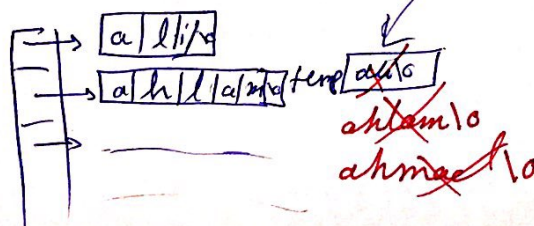 a l i \0
a h l a m \0 temp ali\0
ahlam\0
ahmad \0